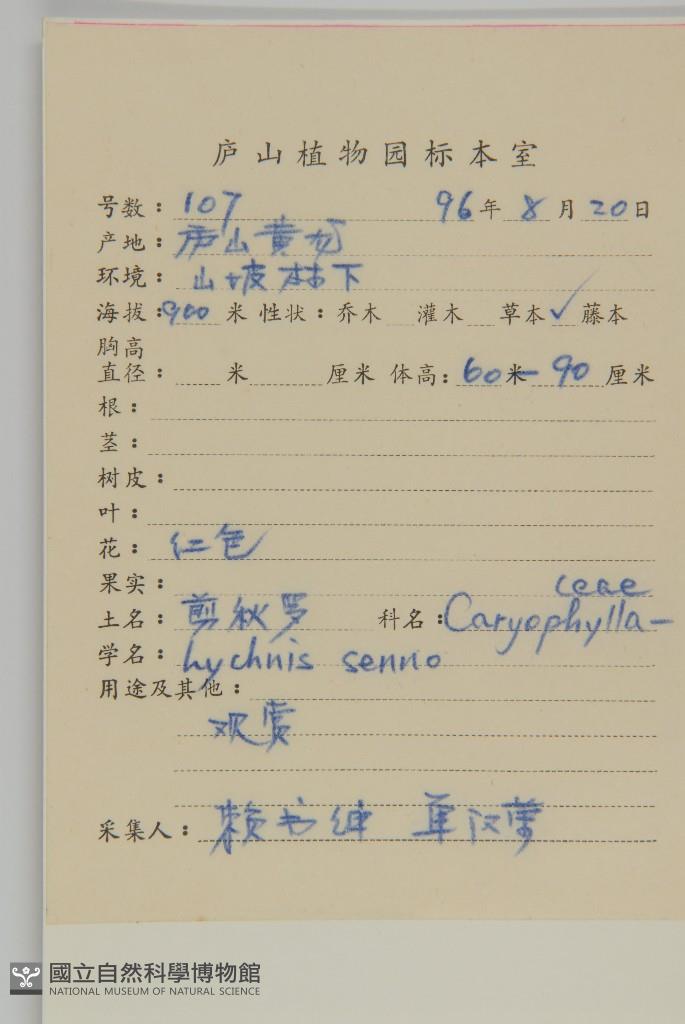 庐山植物园标本室
号数：107 96年8月20日
产地：庐山黄龙
环境：山坡林下
海拔：900米 性状：乔木 灌木 草本✓ 藤本
胸高
直径： 米 厘米 体高：60米-90厘米
根：
茎：
树皮：
叶：
花：红色
果实：
土名：剪秋罗 科名：Caryophylla-
ceae
学名：Lychnis senno
用途及其他：
观赏
采集人：赖书绅 单汉荣
國立自然科學博物館
NATIONAL MUSEUM OF NATURAL SCIENCE